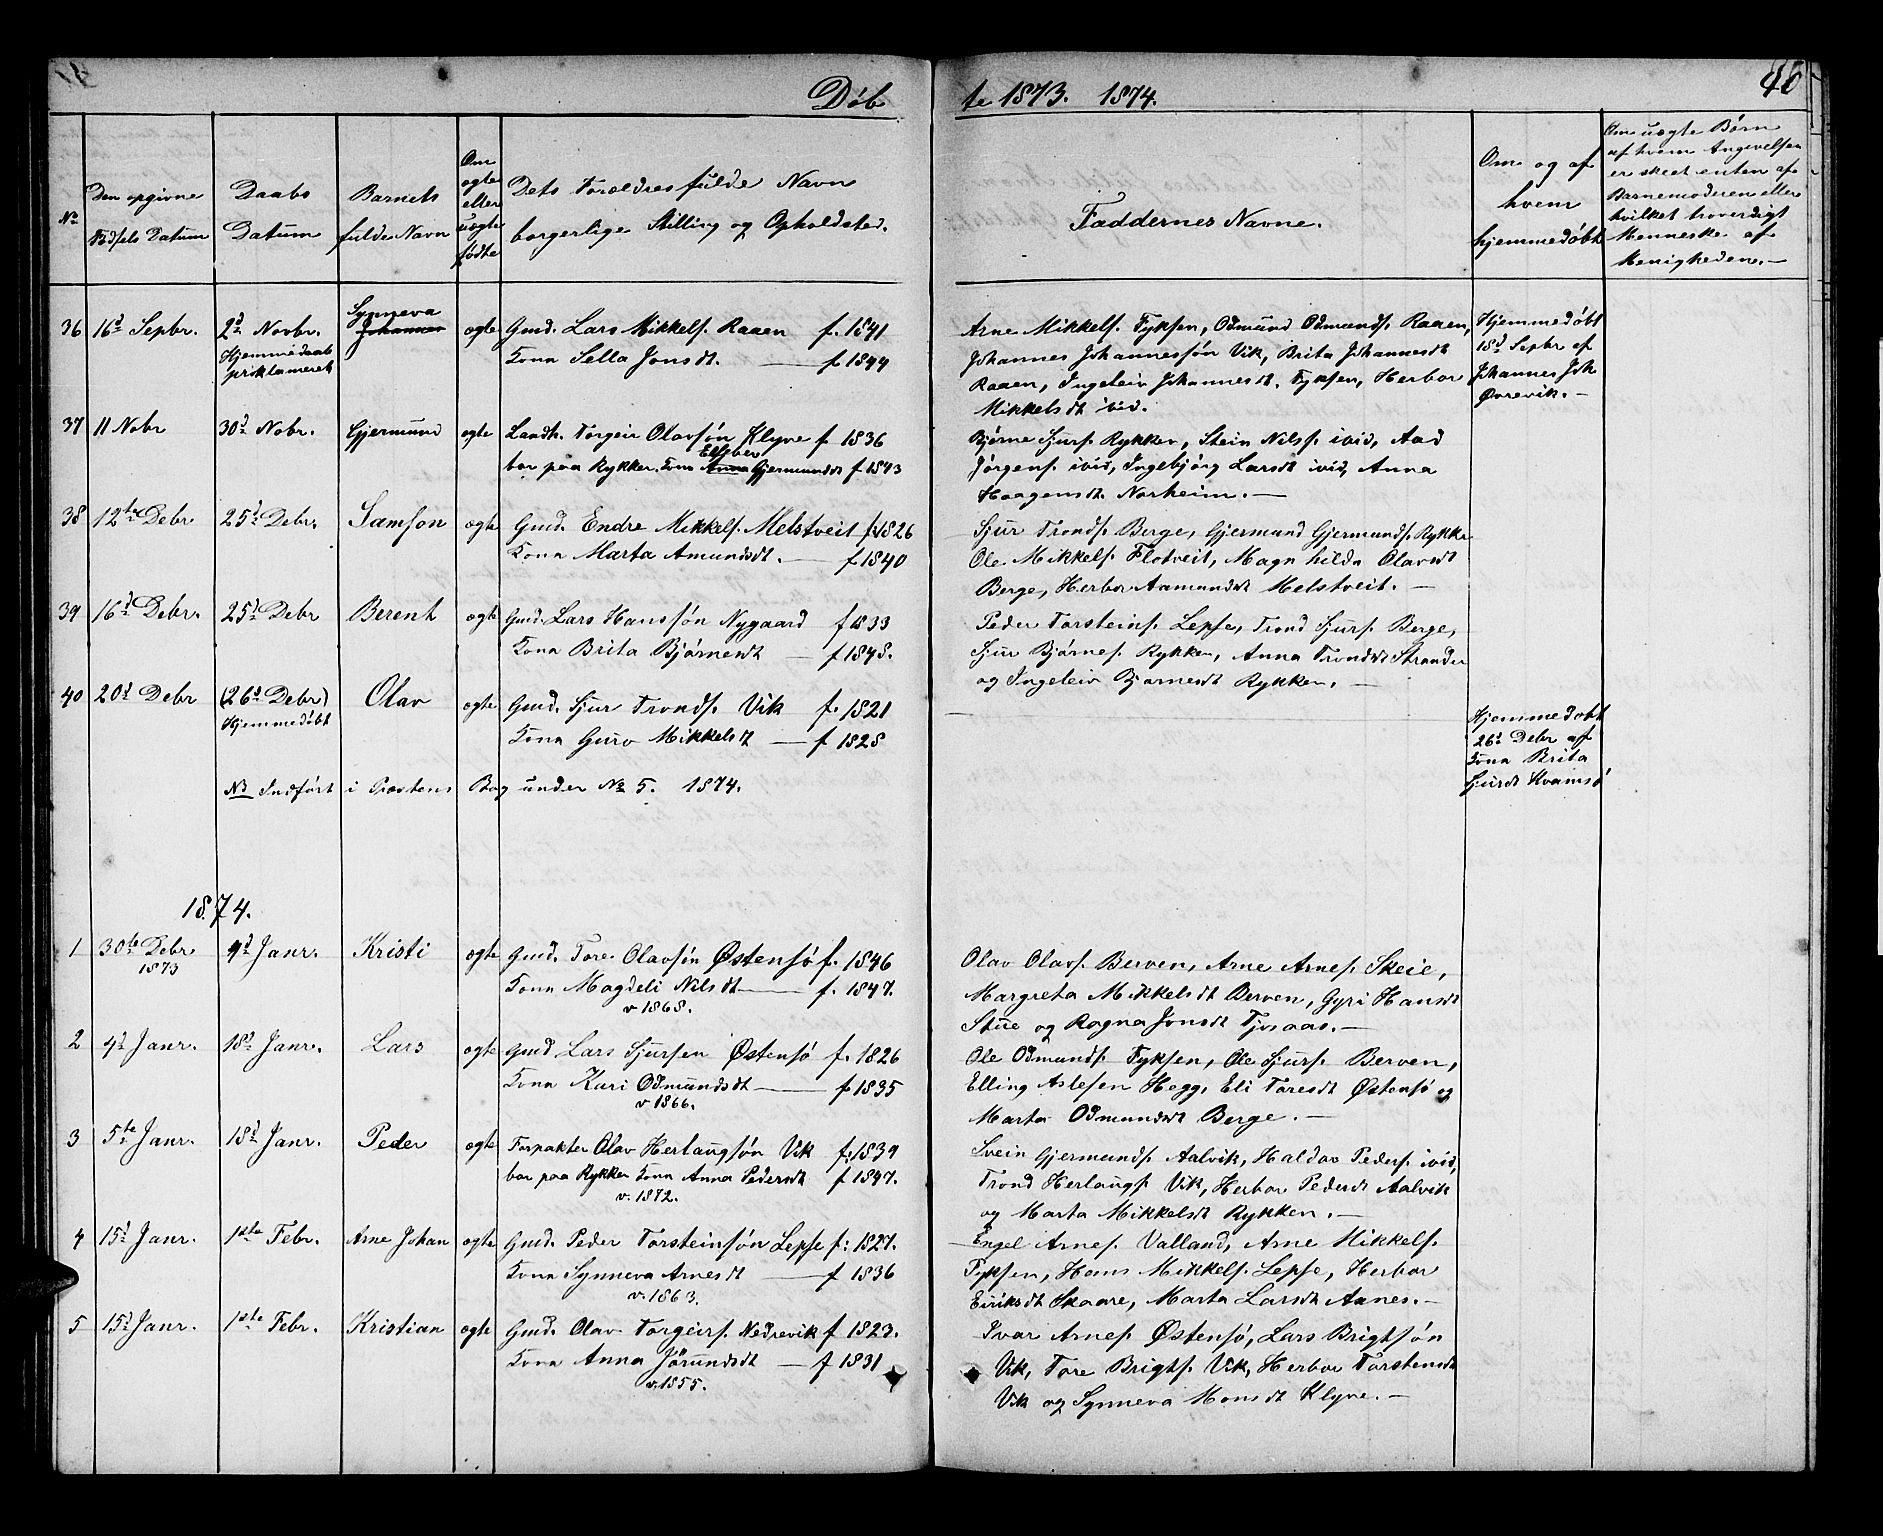 Døb
te 1873. 1874.
46
No
Den opgivne Fødsels Datum
Daabs Datum
Barnets fulde Navn
Om ægte eller uægte fødte
Dets Forældres fulde Navn borgerlige Stilling og Opholdsted.
Faddernes Navne.
Om og af hvem hjemmedøbt
Om uægte Børn af hvem Angivelsen er skeet enten af Barnemoderen eller hvilket troverdigt Menneske af Menigheden.—
36 16d Sepbr. 2d Novbr. Synneva Johannes ægte Gmd. Lars Mikkels. Raaen f. 1841
Hjemmedaab Kona Sella Jonsdt. — f. 1844
proklameret
Arne Mikkels. Fyksen, Odmund Odmunds. Raaen,
Johannes Johannessøn Vik, Brita Johannesdt
Raaen, Ingeleiv Johannesdt. Fyksen, Herbor
Mikkelsdt ibid.
Hjemmedøbt
18d Sepbr af
Johannes Joh
Øvrevik.—
37 11 Nobr 30d Nobr. Gjermund ægte Landh. Torgeir Olavsøn Klyve f 1836
Elsber
bor paa Rykken. Kona Anna Gjermundsdt f. 1843
Bjørne Sjurs. Rykken, Stein Nilss. ibid, Aad
Jørgens. ibid, Ingebjørg Larsdt ibid, Anna
Haagensdt. Norheim.—
38 12te Debr 25d Debr. Samson ægte Gmd. Endre Mikkels. Melstveit f. 1826
Kona Marta Amundsdt. — f 1840
Sjur Tronds. Berge, Gjermund Gjermunds. Rykke
Ole Mikkels. Flotveit, Magnhilda Olavsdt
Berge, Herbor Aamundsdt Melstveit.—
39 16d Debr. 25d Debr Berent ægte Gmd. Lars Hanssøn Nygaard f 1833
Kona Brita Bjørnesdt — f 1848.
Peder Torsteins. Lepse, Trond Sjurs. Berge,
Sjur Bjørnes. Rykken, Anna Trondsdt Strander
og Ingeleiv Bjørnesdt Rykken.—
40 20d Debr (26d Debr) Olav ægte Gmd. Sjur Tronds. Vik f. 1821
Hjemmedøbt Kona Guro Mikkelsdt — f 1828
Hjemmedøbt
26d Debr af
Kona Brita
Sjursdt Kvamsø
NB Indført i Præstens Bog under No 5. 1874.
1874.
1 30te Debr 4d Janr. Kristi ægte Gmd. Tore Olavsøn Østensø f. 1846
1873 Kona Magdeli Nilsdt — f. 1847.
v 1868.
Olav Olavs. Berven, Arne Arnes. Skeie,
Margreta Mikkelsdt Berven, Gyri Hansdt
Stue og Ragna Jonsdt Tjosaas.—
2 4d Janr. 18d Janr. Lars ægte Gmd Lars Sjursen Østensø f. 1826
Kona Kari Odmundsdt — f 1835
v 1866.
Ole Odmunds. Fyksen, Ole Sjurs. Berven,
Elling Aslesen Hegg, Eli Toresdt Østensø og
Marta Odmundsdt Berge.—
3 5te Janr. 18d Janr. Peder ægte Forpakter Olav Herlaugsøn Vik f. 1839
bor paa Rykken Kona Anna Pedersdt f 1847.
v. 1872.
Svein Gjermunds. Aalvik, Haldor Peders. ibid,
Trond Herlaugs. Vik, Herbor Pedersdt Aalvik
og Marta Mikkelsdt Rykken.—
4 15d Janr. 1ste Febr. Arne Johan ægte Gmd. Peder Torsteinsøn Lepse f: 1827.
Kona Synneva Arnesdt — f 1836
v. 1863.
Engel Arnes. Valland, Arne Mikkels.
Fyksen, Hans Mikkels. Lepse, Herbor
Eiriksdt Skaare, Marta Larsdt Aanes.—
5 15d Janr. 1ste Febr. Kristian ægte Gmd. Olav Torgeirs. Nedrevik f 1823.
Kona Anna Jørundsdt — f 1831
v. 1855.
Ivar Arnes. Østensø, Lars Brigtsøn
Vik, Tore Brigts. Vik, Herbor Torstensdt
Vik og Synneva Monsdt Klyve.—